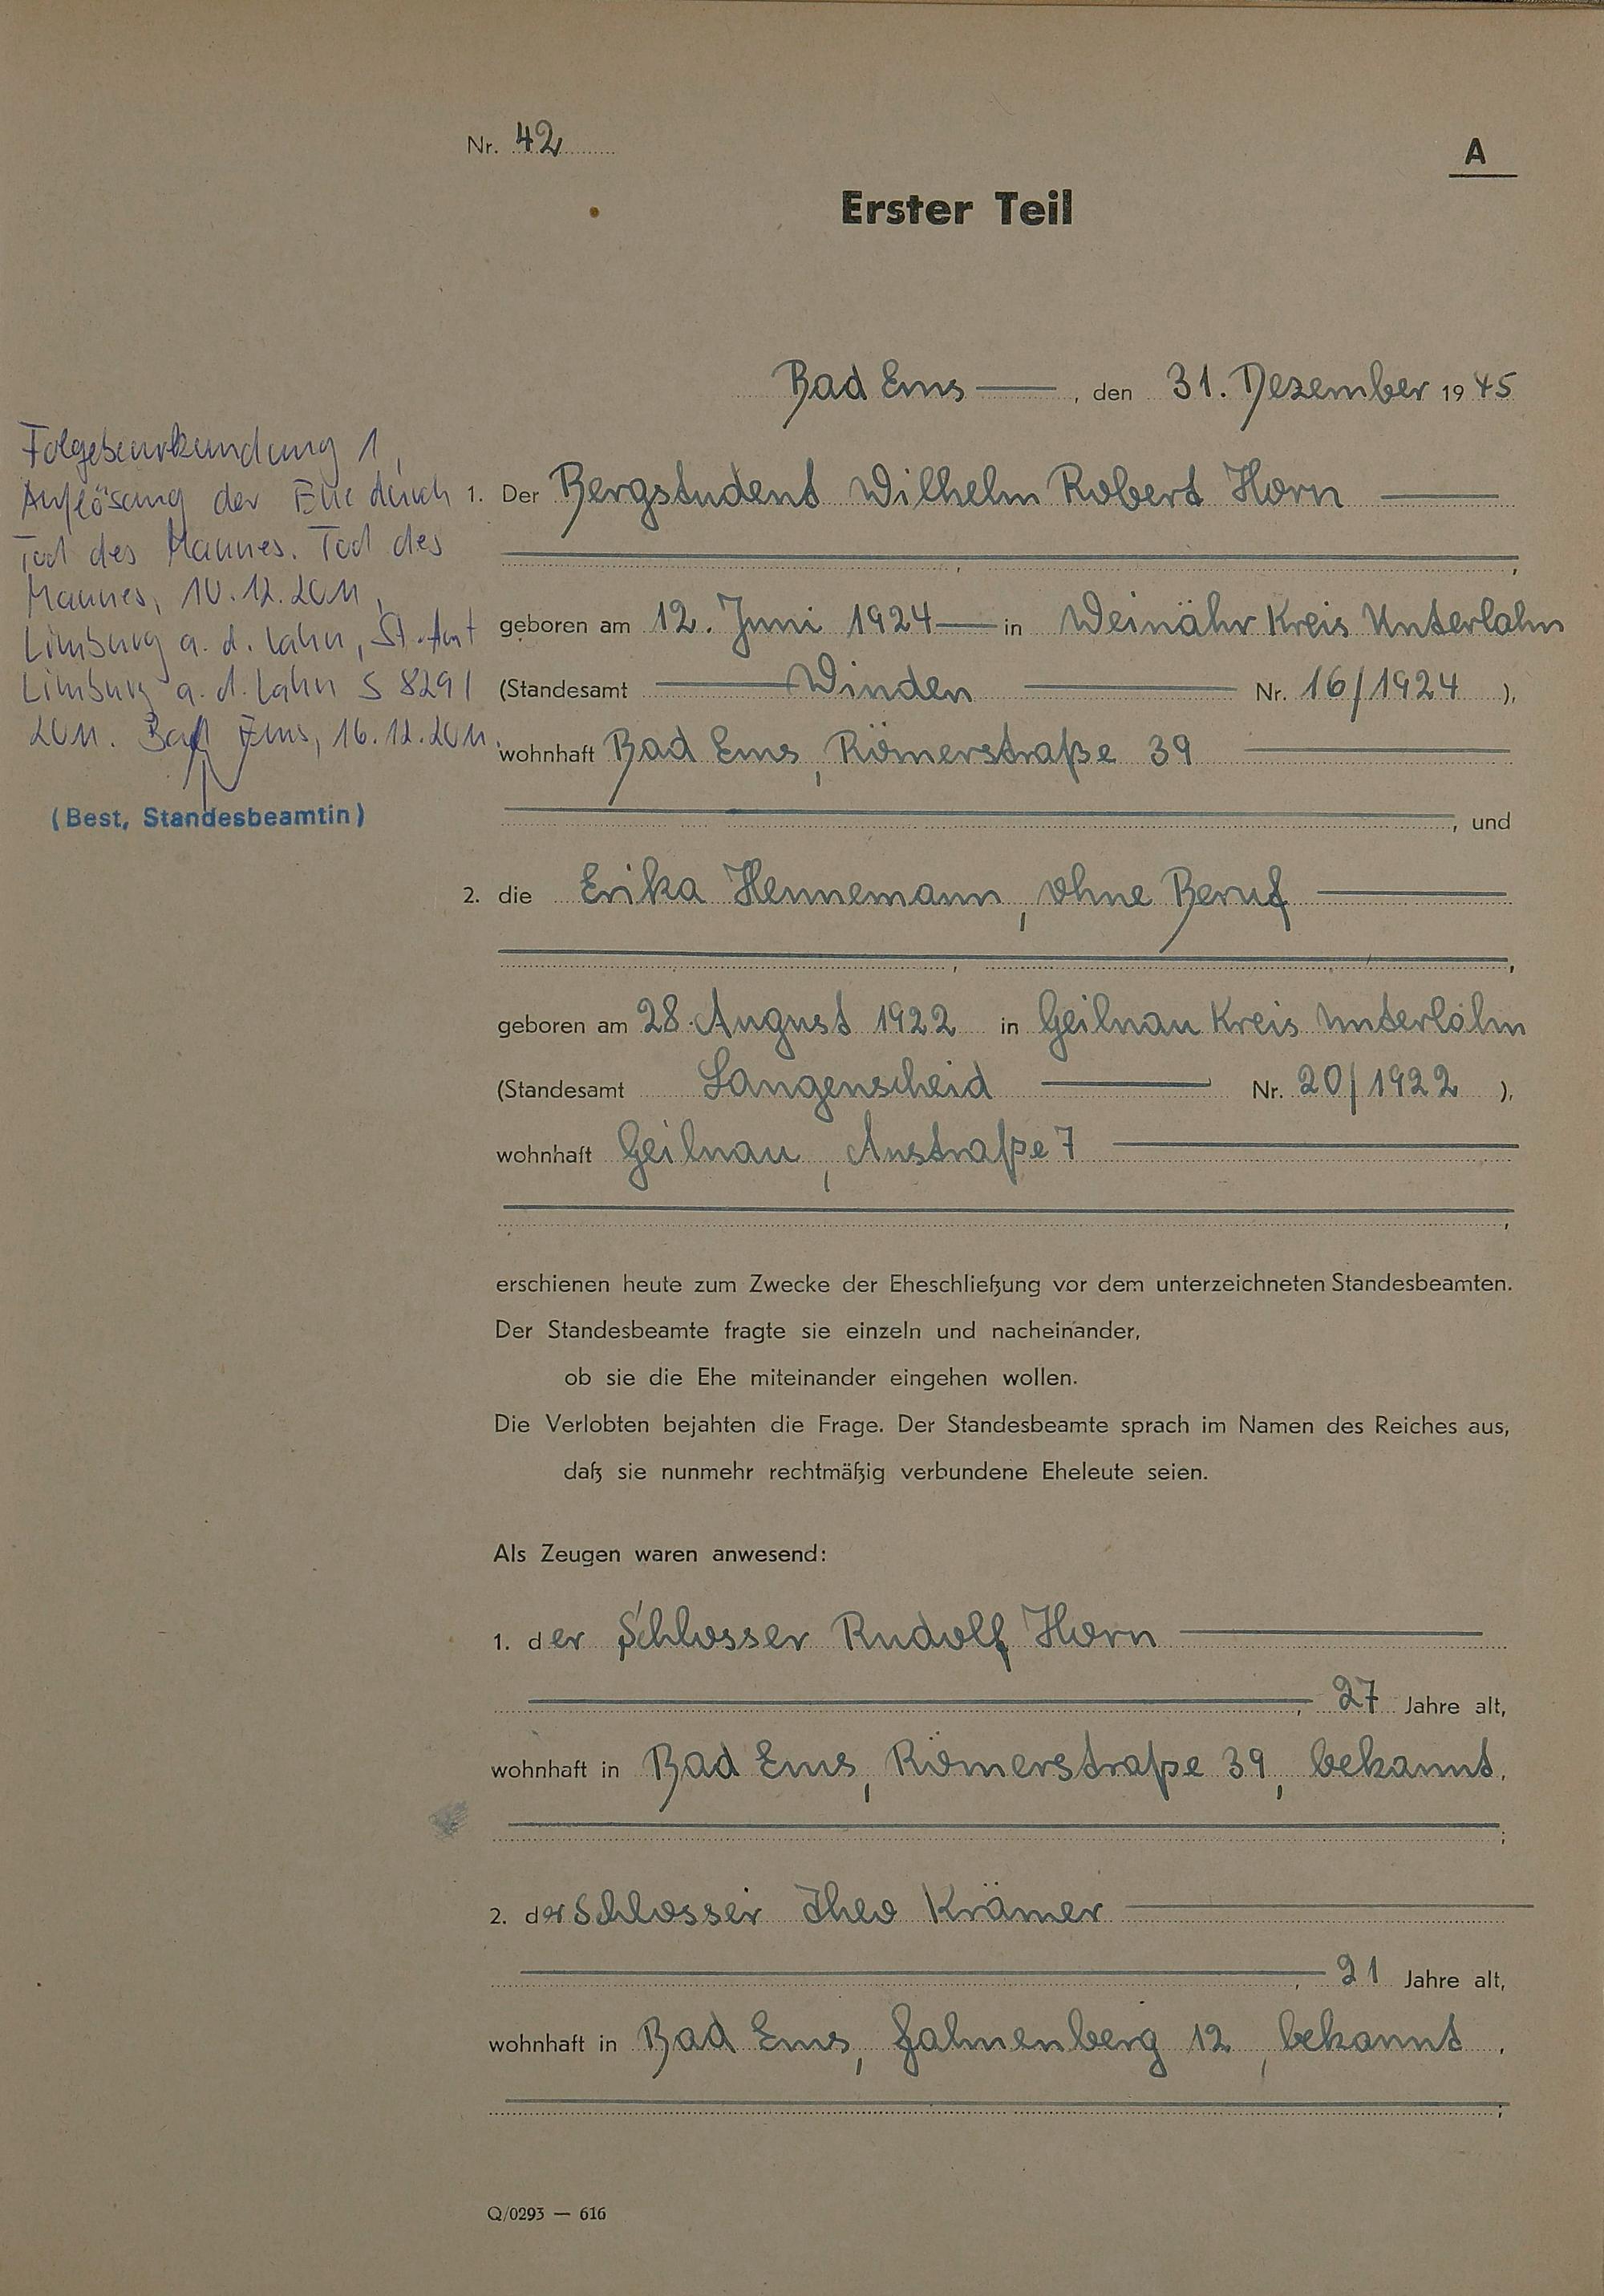 Nr. 42
A
Erster Teil
Bad Ems , den 31. Dezember 1945
Folgebeurkundung 1,
Auflösung der Ehe durch
Tod des Mannes. Tod des
Mannes, 10.12.2011,
Limburg a. d. Lahn, St.Amt
Limburg a. d. Lahn S 829/
2011. Bad Ems, 16.12.2011.
(Best, Standesbeamtin)
1. Der Bergstudent Wilhelm Robert Horn
geboren am 12. Juni 1924 in Weinähr Kreis Unterlahn
(Standesamt Winden Nr. 16/1924 ),
wohnhaft Bad Ems, Römerstraße 39
, und
2. die Erika Hennemann, ohne Beruf
geboren am 28. August 1922 in Geilnau Kreis Unterlahn
(Standesamt Langenscheid Nr. 20/1922 ),
wohnhaft Geilnau, Austraße 7
erschienen heute zum Zwecke der Eheschließung vor dem unterzeichneten Standesbeamten.
Der Standesbeamte fragte sie einzeln und nacheinander,
ob sie die Ehe miteinander eingehen wollen.
Die Verlobten bejahten die Frage. Der Standesbeamte sprach im Namen des Reiches aus,
daß sie nunmehr rechtmäßig verbundene Eheleute seien.
Als Zeugen waren anwesend:
1. der Schlosser Rudolf Horn
, 27 Jahre alt,
wohnhaft in Bad Ems, Römerstraße 39, bekannt.
;
2. der Schlosser Theo Krämer
, 21 Jahre alt,
wohnhaft in Bad Ems, Fahnenberg 12, bekannt.
;
Q/0293 — 616